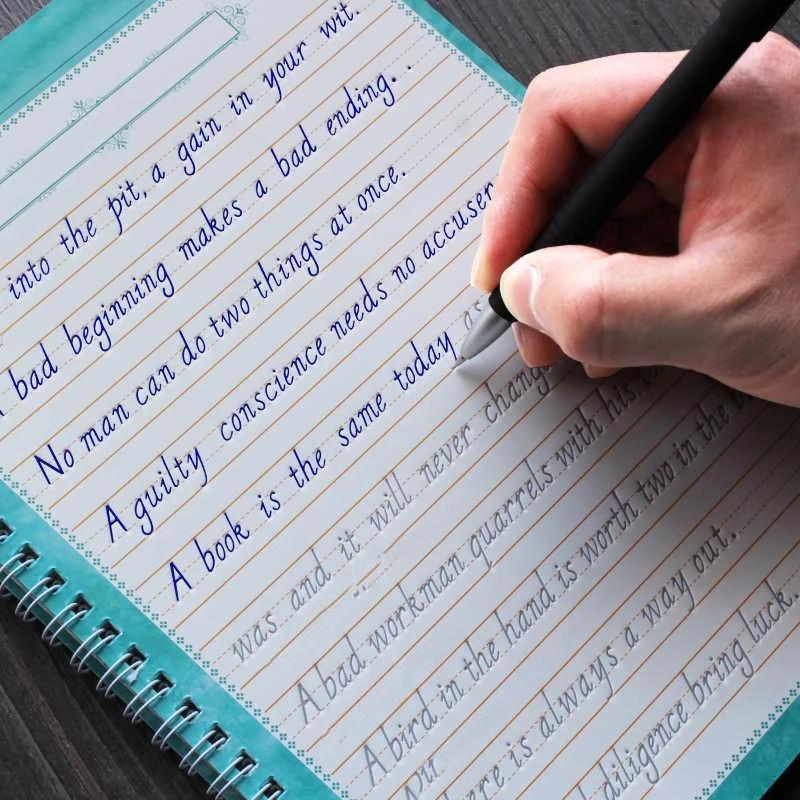 into the pit, a gain in your wit.
bad beginning makes a bad ending.
No man can do two things at once.
A guilty conscience needs no accuser
A book is the same today as
was and it will never change
A bad workman quarrels with his
A bird in the hand is worth two in the
is always a way out.
diligence bring luck.